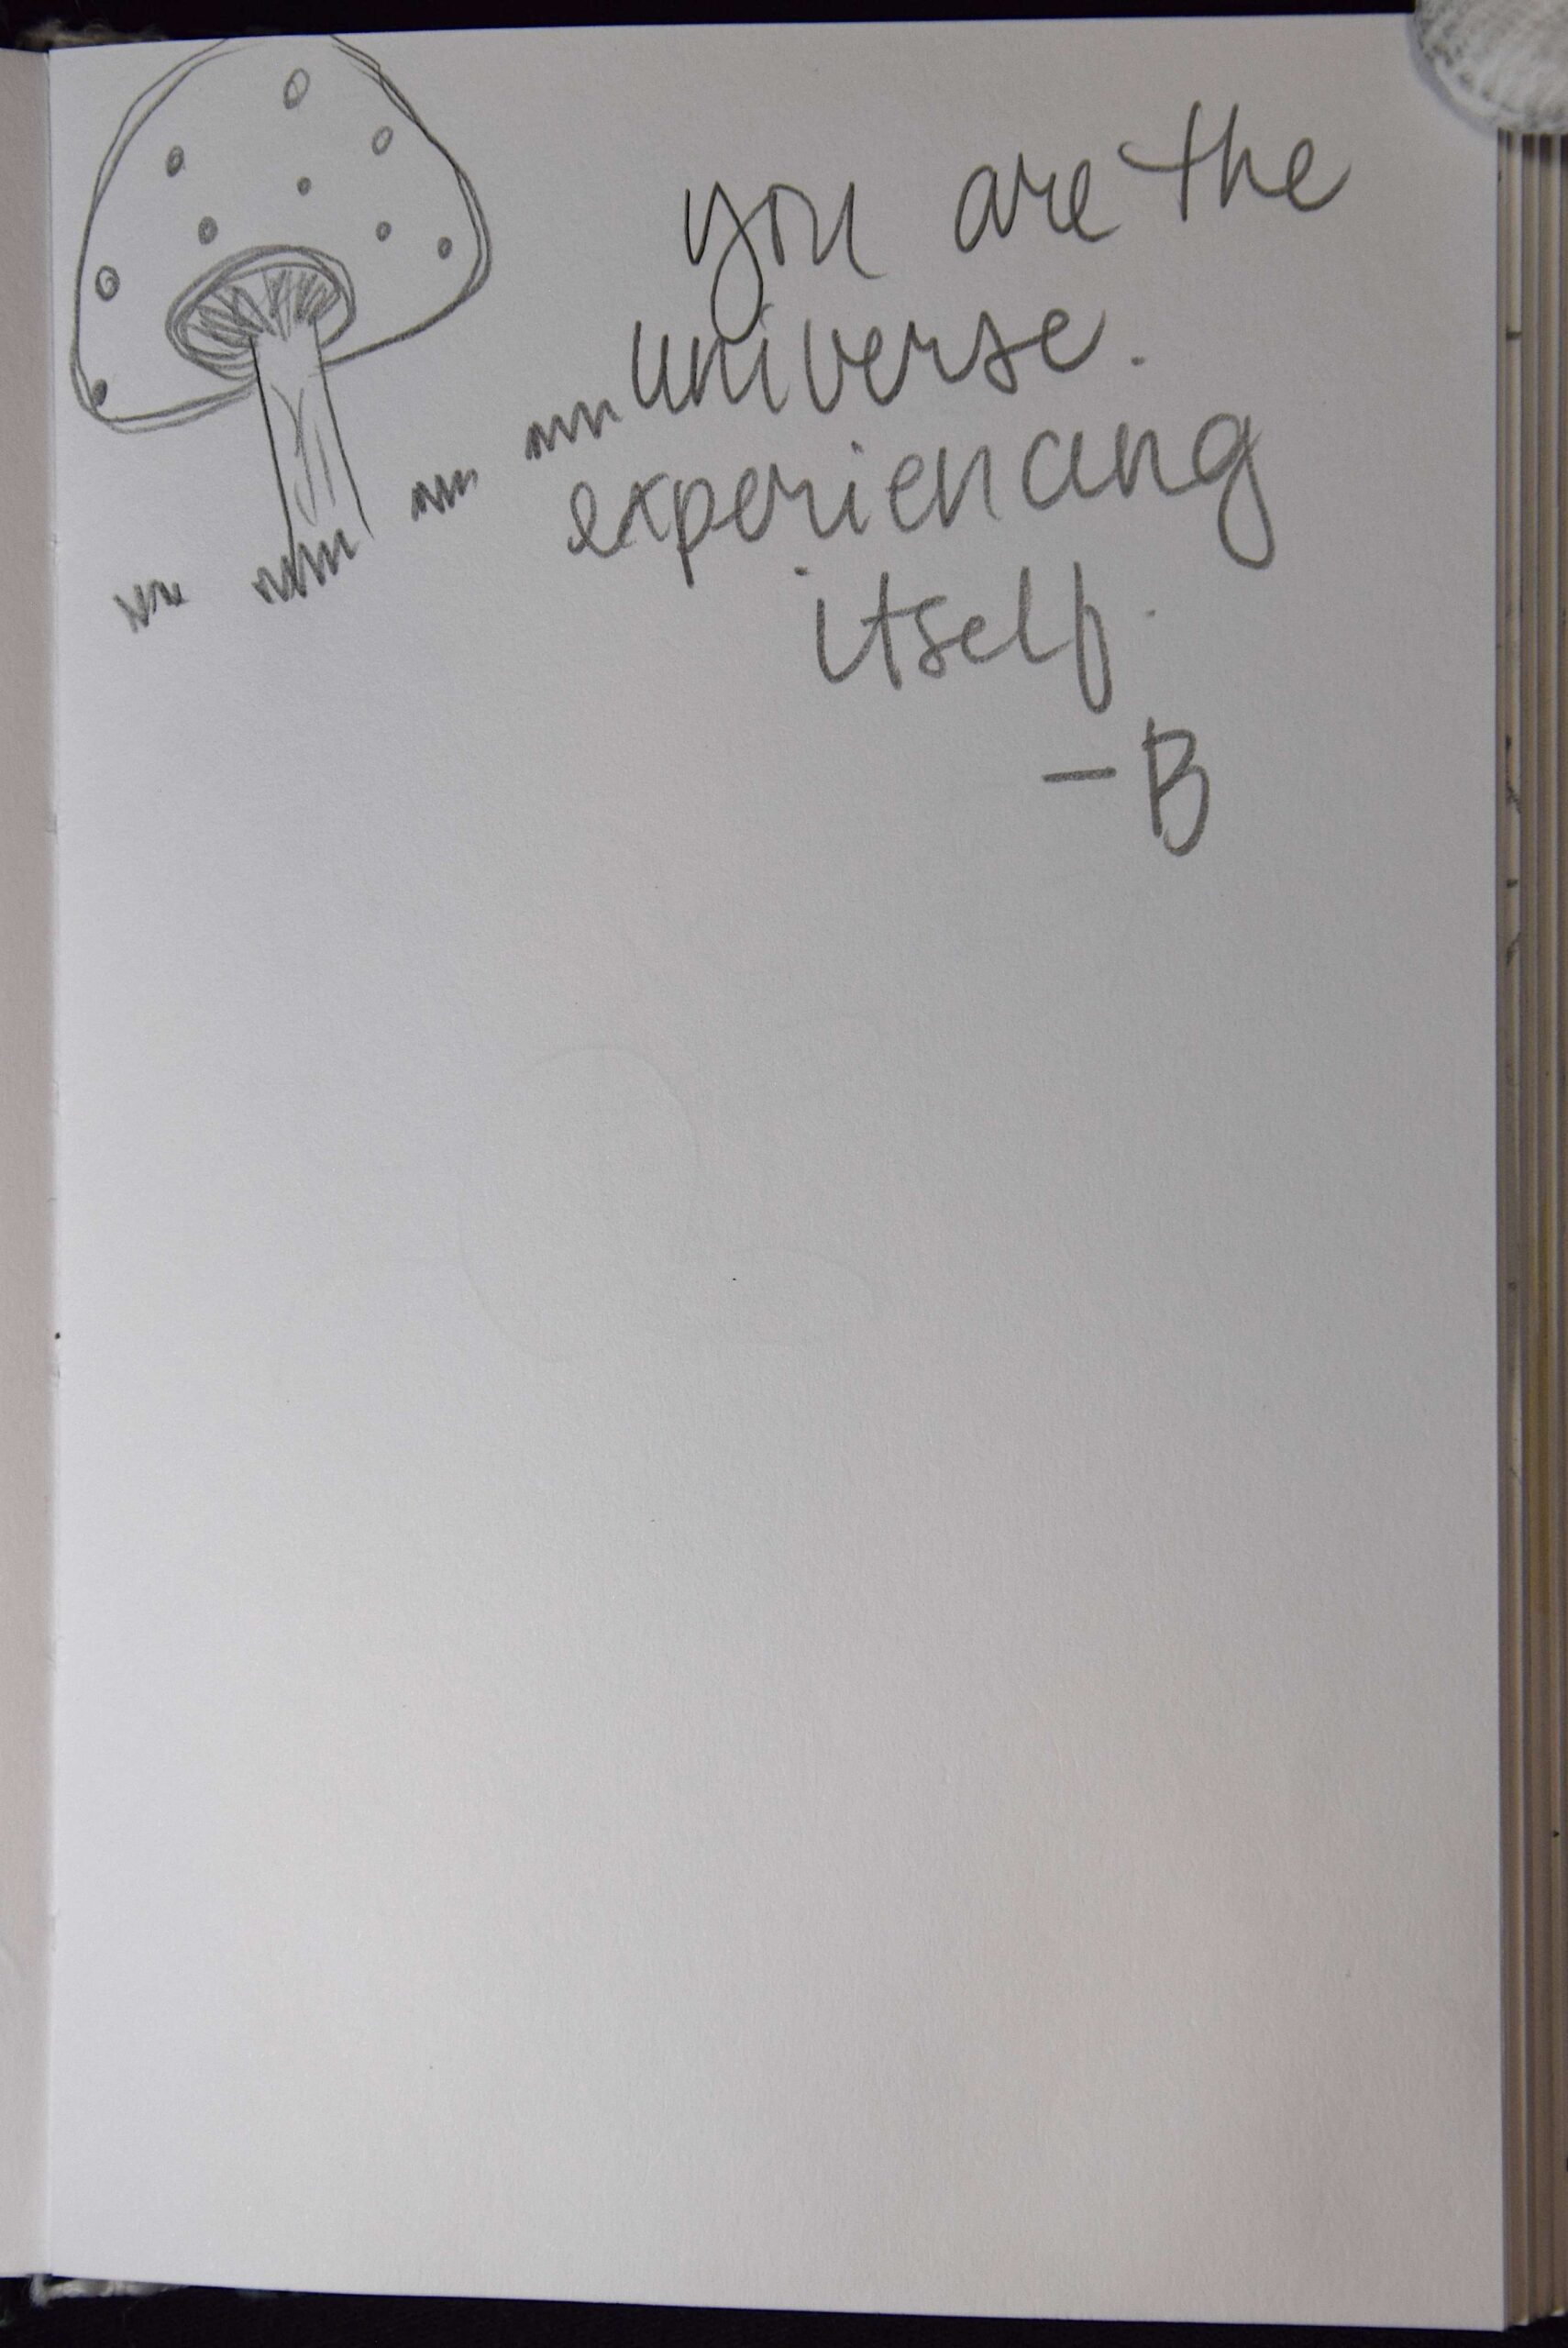 you are the
universe.
experiencing
itself.
- B